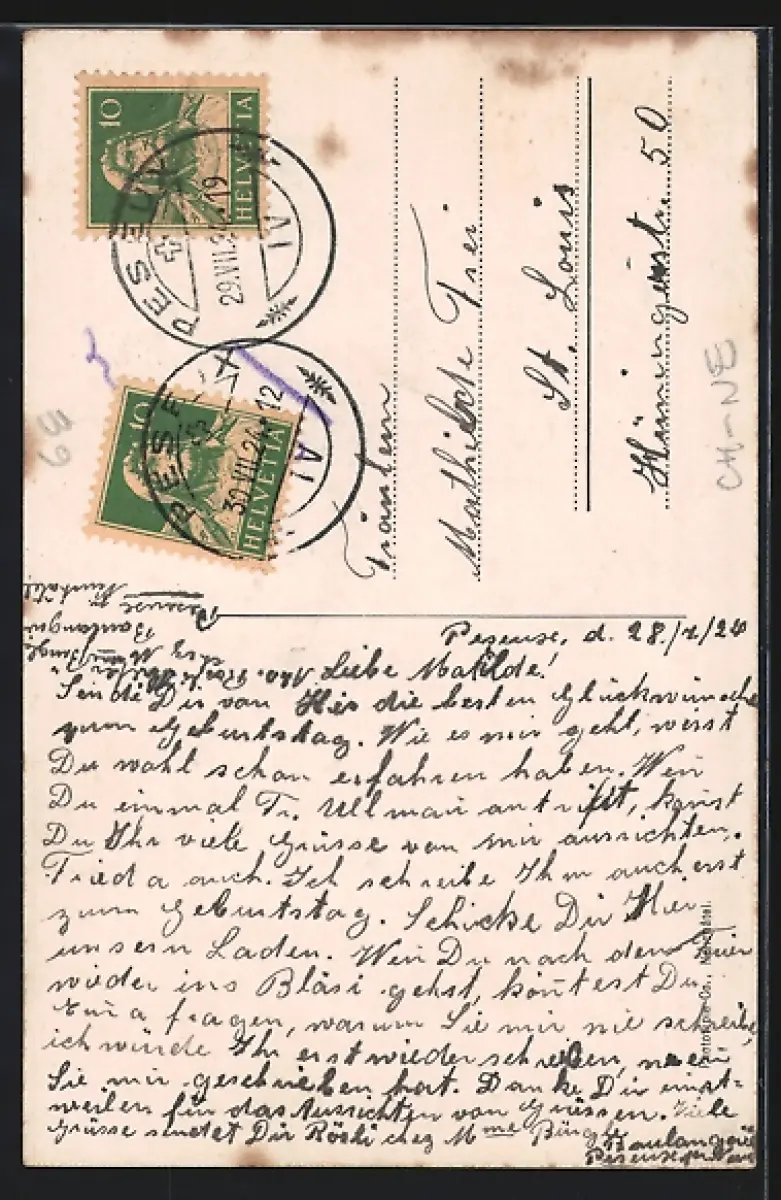 10
HELVETIA
PESEUX
29.VII.24.19
VI
10
HELVETIA
PESEUX
30.VII.24.12
VI
69
CH-NE
Fräulein
Mathilde Frei
St. Louis
Hüningerstr. 50
Peseuse, d. 28./7/24
Liebe Matilde!
Sende Dir von Hier die besten Glückwünsche
zum Geburtstag. Wie es mir geht, weist
Du wohl schon erfahren haben. Wen
Du einmal Fr. Ullman antrifft, kanst
Du Ihr viele Grüsse von mir ausrichten.
Frieda auch. Ich schreibe Ihm auch erst
zum Geburtstag. Schicke Dir Hier
unsern Laden. Wen Du nach den Feier
wieder ins Bläsi gehst, köntest Du
fragen, warum Sie mir nie schreibt,
ich würde Ihr erst wieder schreiben, wen
Sie mir geschrieben hat. Danke Dir einst=
weilen für das Ausrichten von Grüssen. Viele
Grüsse sendet Dir Rösli chez Mme Bürgle
Boulangerie
Peseuse
chez Mme Bürgle
Boulangerie
Peseuse